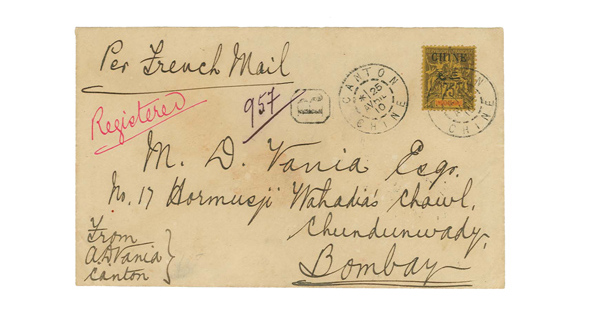 Per French Mail
Registered
957
R
CANTON
26
CHINE
CHINE
75
CHINE
M. D. Vania Esqr.
No. 17 Hormusji Wahadia's Chawl,
Chundunwady,
Bombay
From
A. D. Vania
Canton